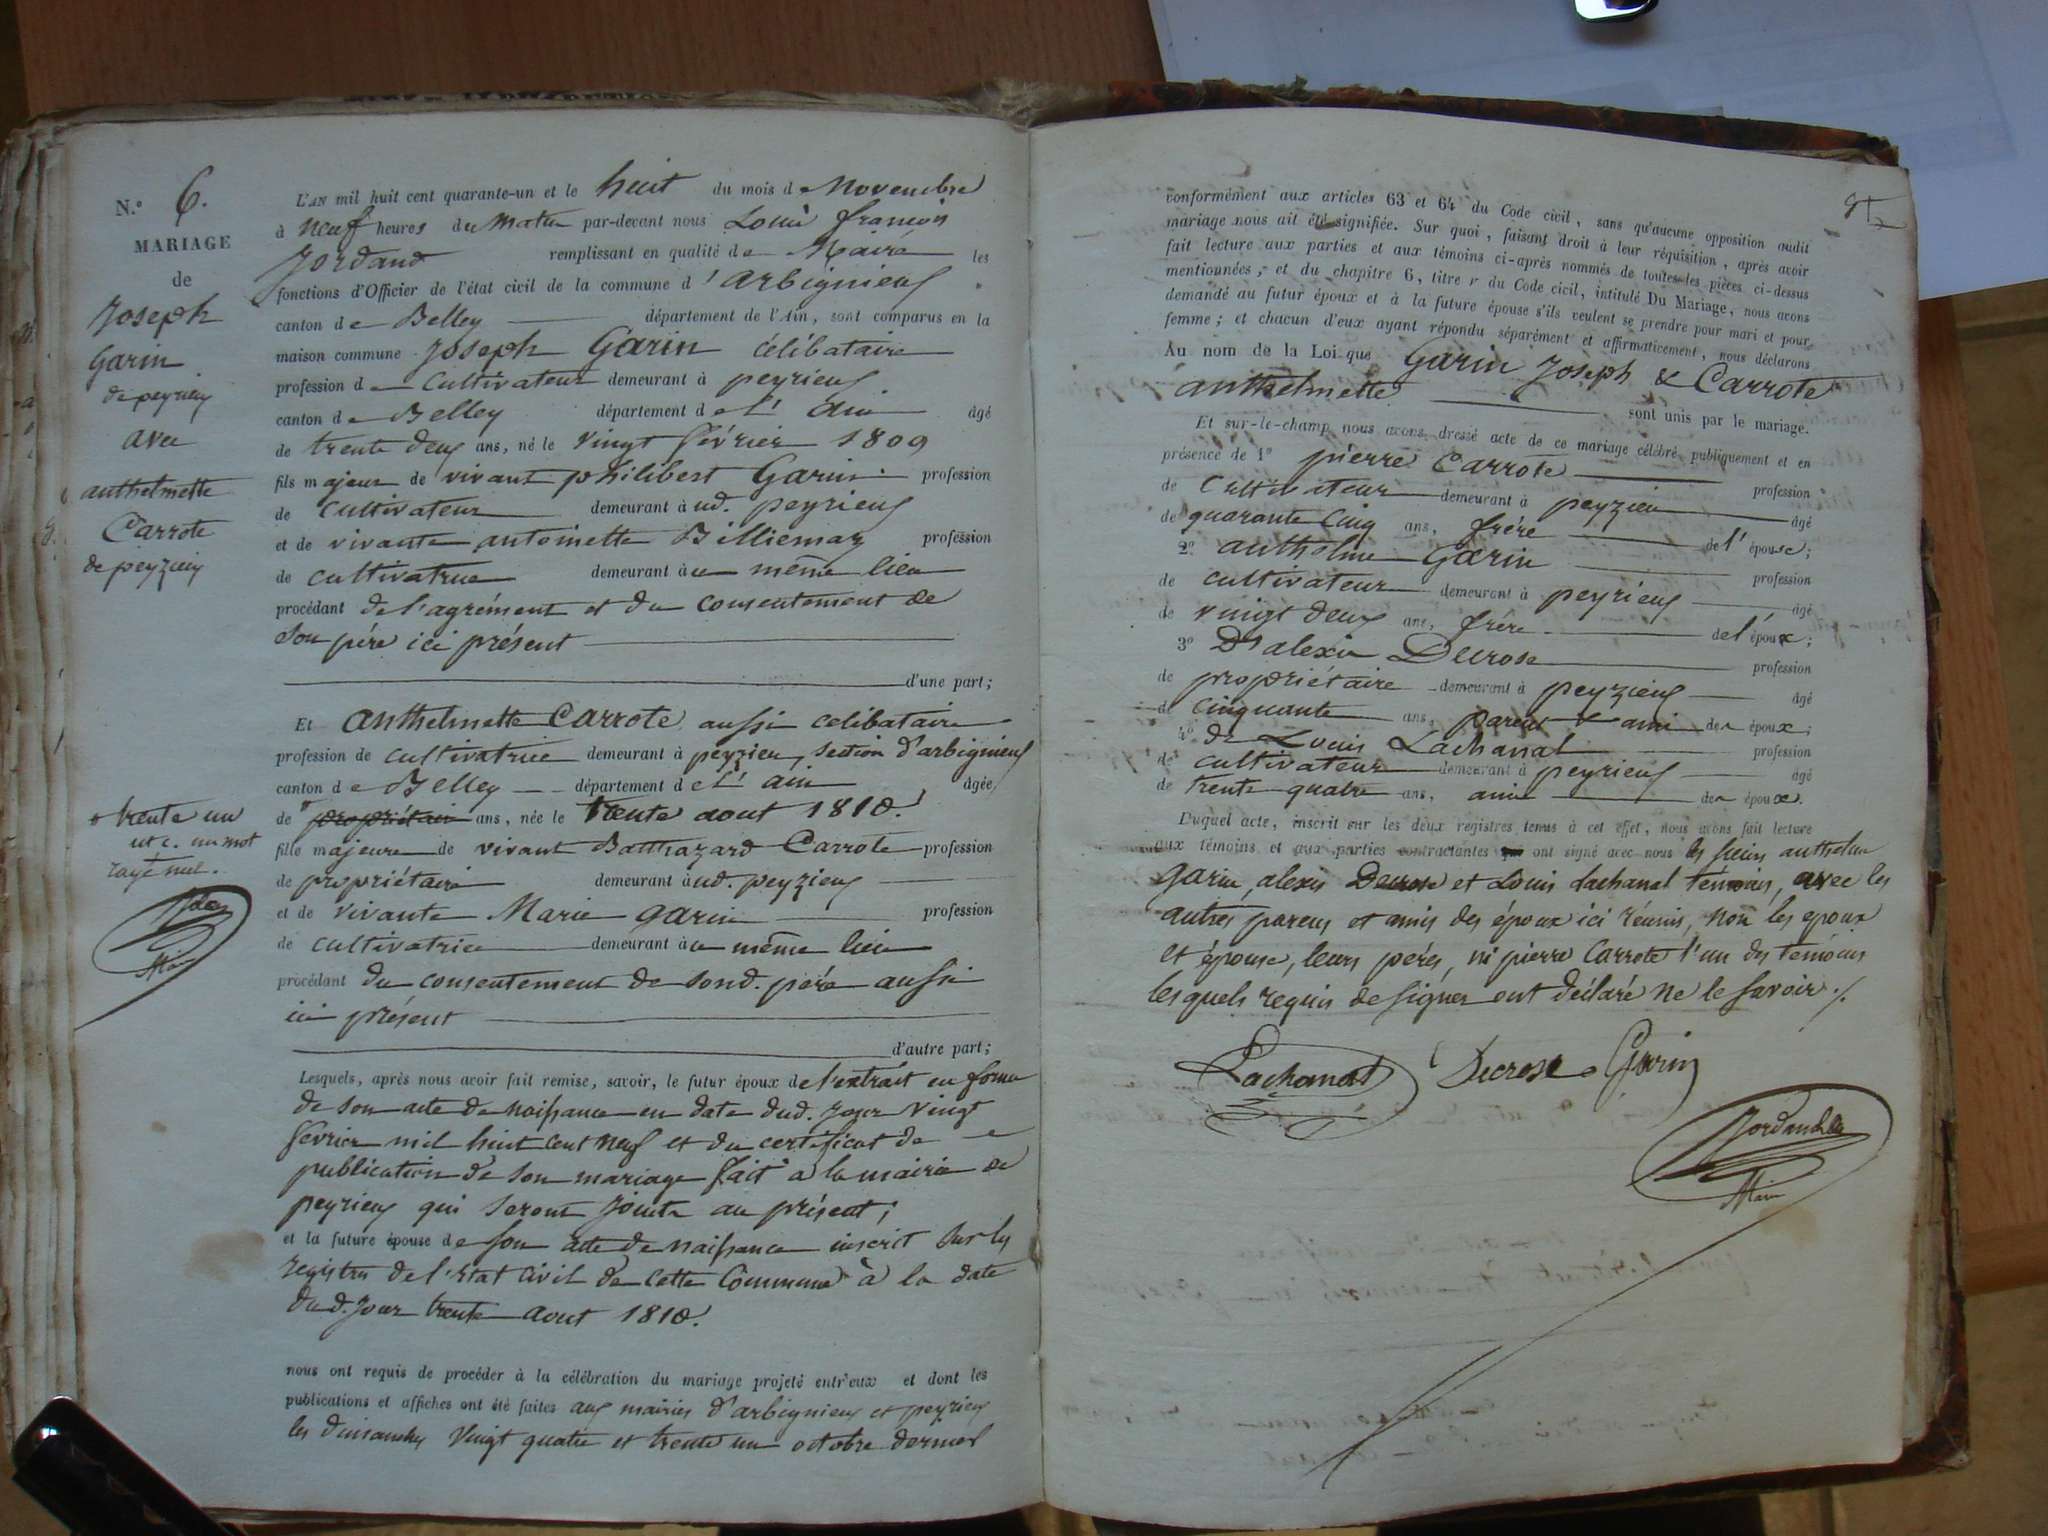 N.° 6.
MARIAGE
de
Joseph
Garin
de peyrieux
avec
anthelmette
Carrote
de peyzieux
L'AN mil huit cent quarante-un et le huit du mois de Novembre
à neuf heures du matin par-devant nous Louis françois
Jordand remplissant en qualité de Maire les
fonctions d'Officier de l'état civil de la commune d'arbignieux
canton de Belley département de l'Ain, sont comparus en la
maison commune Joseph Garin célibataire
profession de Cultivateur demeurant à peyrieux
canton de Belley département de l'ain âgé
de trente deux ans, né le vingt février 1809
fils majeur de vivant philibert Garin profession
de cultivateur demeurant à ud. peyrieux
et de vivante antoinette Billiemaz profession
de cultivatrice demeurant à u même lieu
procédant de l'agrément et du consentement de
son père ici présent
d'une part;
Et anthelmette Carrote aussi celibataire
profession de cultivatrice demeurant à peyzieu, section d'arbignieux
canton de Belley département de l'ain âgée
* trente un
un mot
rayé nul.
de * propriétaire ans, née le trente aout 1810.
fille majeure de vivant Balthazard Carrote profession
de propriétaire demeurant à ud. peyzieux
et de vivante Marie garin profession
de cultivatrice demeurant à u même lieu
procédant du consentement de sond. père aussi
ici présent
d'autre part;
Lesquels, après nous avoir fait remise, savoir, le futur époux de l'extrait en forme
de son acte de naissance en date dud. jour vingt
février mil huit cent neuf et du certificat de
publication de son mariage fait à la mairie de
peyrieux qui seront joints au présent;
et la future épouse de son acte de naissance inscrit sur les
registres de l'état civil de cette Commune à la date
dud. jour trente aout 1810.
nous ont requis de procéder à la célébration du mariage projeté entr'eux et dont les
publications et affiches ont été faites aux mairies d'arbignieux et peyrieux
les dimanches vingt quatre et trente un octobre dernier
conformément aux articles 63 et 64 du Code civil, sans qu'aucune opposition audit
mariage nous ait été signifiée. Sur quoi, faisant droit à leur réquisition, après avoir
fait lecture aux parties et aux témoins ci-après nommés de toutes les pièces ci-dessus
mentionnées, et du chapitre 6, titre v du Code civil, intitulé Du Mariage, nous avons
demandé au futur époux et à la future épouse s'ils veulent se prendre pour mari et pour
femme; et chacun d'eux ayant répondu séparément et affirmativement, nous déclarons
Au nom de la Loi que Garin Joseph & Carrote
anthelmette sont unis par le mariage.
Et sur-le-champ nous avons dressé acte de ce mariage célébré publiquement et en
présence de 1° pierre Carrote profession
de Cultivateur demeurant à peyzieu âgé
de quarante cinq ans, frère de l'épouse;
2° anthelme Garin profession
de cultivateur demeurant à peyrieux âgé
de vingt deux ans, frère de l'époux;
3° Dr alexis Decrose profession
de propriétaire demeurant à peyzieux âgé
de cinquante ans, parent & ami des époux;
4° de Louis Lachanal profession
de cultivateur demeurant à peyrieux âgé
de trente quatre ans, ami des époux.
Duquel acte, inscrit sur les deux registres tenus à cet effet, nous avons fait lecture
aux témoins et aux parties contractantes qui ont signé avec nous les sieurs anthelme
garin, alexis Decrose et Louis Lachanal témoins, avec les
autres parens et amis des époux ici réunis, non les époux
et épouse, leurs pères, ni pierre Carrote l'un des témoins
lesquels requis de signer ont déclaré ne le savoir ./.
Lachanal Decrose Garin
Jordand
Maire